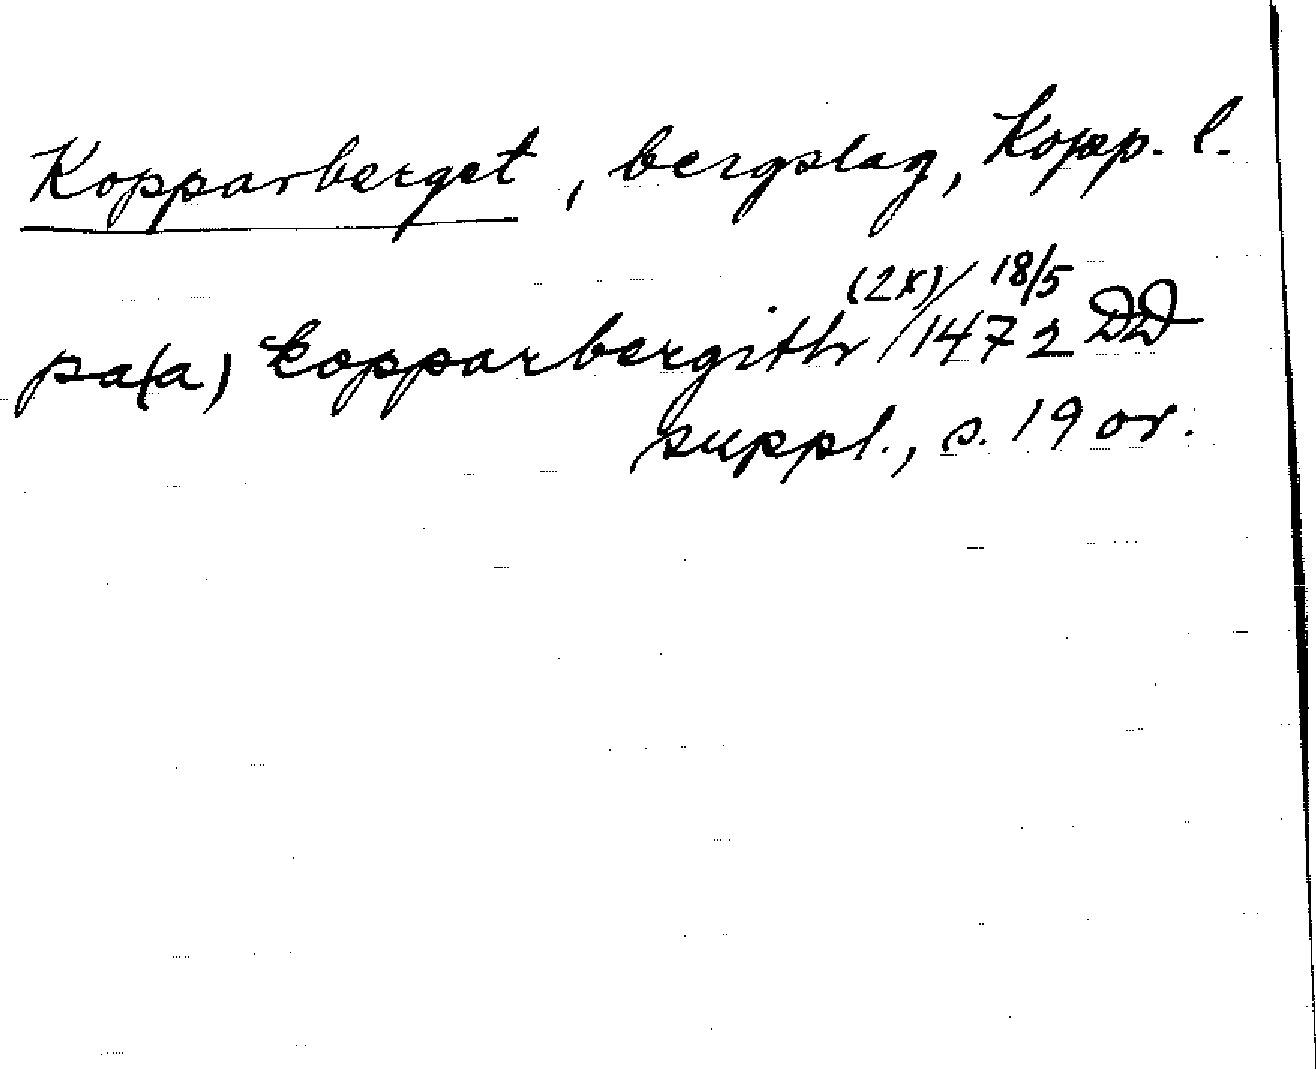 Kopparberget, bergslag, Kopp. l.
pa(a) kopparbergith (2x) 18/5 1472 DD
suppl., s. 19 or.